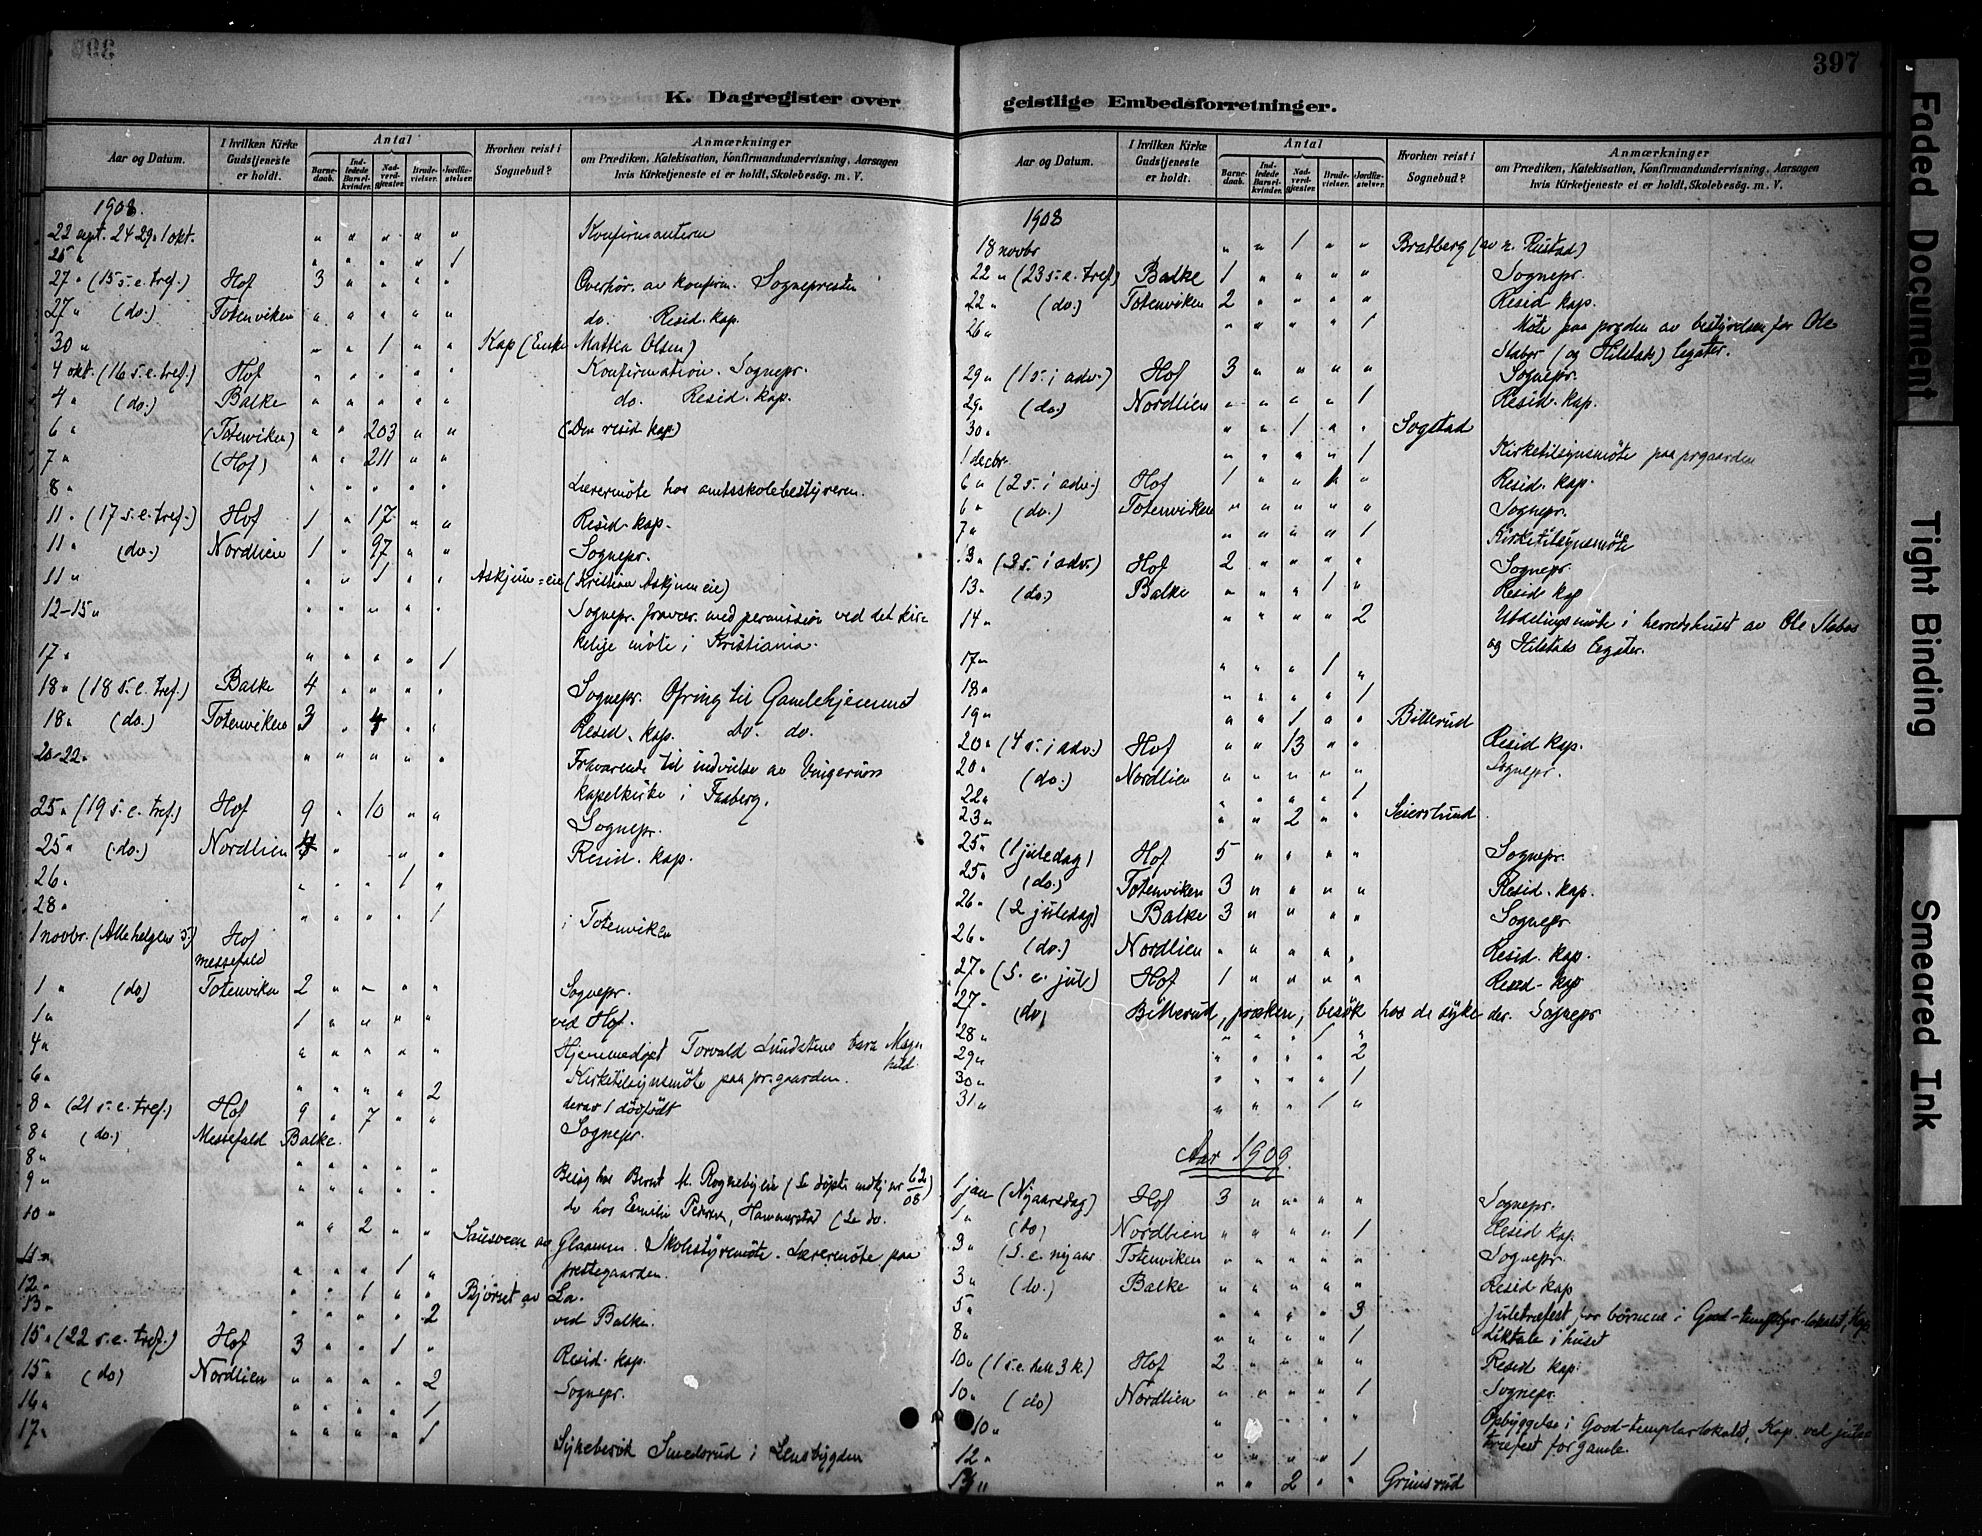 397
K. Dagregister over geistlige Embedsforretninger.
Aar og Datum. I hvilken Kirke Gudstjeneste er holdt. Antal Barnedaab. Indledede Barselkvinder. Nadverdgjæster. Brudevielser. Jordfæstelser. Hvorhen reist i Sognebud? Anmærkninger om Prædiken, Katekisation, Konfirmandundervisning, Aarsagen hvis Kirketjeneste ei er holdt, Skolebesøg. m. V.
1908.
22 sept. 24 29. 1 okt. " " " " " Konfirmanterne
25 " " " " " 1
27 " (15 s. e. tref.) Hof 3 " " " " Overhør. av konfirm. Sognepresten
27 " (do.) Totenviken " " " " " do. Resid. kap.
30 " " " 1 " " Kap (Enke Mathea Olsen)
4 okt. (16 s. e. tref.) Hof " " " " " Konfirmation. Sognepr.
4 " (do.) Balke " " " " " do. Resid. kap.
6 " (Totenviken) " " 203 " " (Den resid kap)
7 " (Hof) " " 211 " "
8 " " " " " " Lærermöte hos amtsskolebestyreren.
11 " (17 s. e. tref.) Hof 1 " 17 " " Resid. kap.
11 " (do.) Nordlien 1 " 97 " " Sognepr.
11 " " " 1 " " Askjum=eie (Kristian Askjumeie)
12-15 " " " " " " Sognepr. fravær. med permission ved det kir-
kelige möte i Kristiania.
17 " " " " " 1
18 " (18 s. e. tref.) Balke 4 " " " " Sognepr. Ofring til Gamlehjemmet
18 " (do.) Totenviken 3 " 4 " " Resid. kap. do. do.
20-22 " " " " " " Fraværende til indvielse av Vingerum
kapelkirke i Faaberg.
25 " (19 s. e. tref.) Hof 9 " 10 " " Sognepr.
25 " (do.) Nordlien " " " " Resid. kap.
26 " " " " 1 "
28 " " " " " 1 i Totenviken
1 novbr. (Allehelgens s.) Hof
messefald
1 " (do) Totenviken 2 " " " " Sognepr.
1 " 1 " " " " ved Hof.
4 " " " " " " Hjemmedøpt Torvald Lundstens barn Magn
hild
6 " " " " " 2 Kirketilsynsmöte paa pr.gaarden.
8 " (21 s. e. tref.) Hof 9 " 7 " " derav 1 dødfödt
8 " (do.) Messefald Balke. Sognepr.
8 " " " " " "
9 " " " " " " Besög hos Bernt M. Rognebyeie
10 " " " 2 " " do hos Emilie Pedersen, Hammerstad
Sausveen av Glaamen. Skolestyremöte. Lærermöte paa
11 " " " " 1 " prestegaarden.
12 " " " 1 " " Bjørset av La.
13 " " " " " 2 ved Balke.
15 " (22 s. e. tref.) Hof 3 " " 1 " Resid. kap.
15 " (do) Nordlien " " " " 2 Sognepr.
16 " " " " " 1
17 " " " " " 1
Sykebesök Smedsrud i Lensbygden
Aar og Datum. I hvilken Kirke Gudstjeneste er holdt. Antal Barnedaab. Indledede Barselkvinder. Nadverdgjæster. Brudevielser. Jordfæstelser. Hvorhen reist i Sognebud? Anmærkninger om Prædiken, Katekisation, Konfirmandundervisning, Aarsagen hvis Kirketjeneste ei er holdt, Skolebesøg. m. V.
1908
18 novbr " " 1 " " Bratberg (av n. Rustad)
22 " (23 s. e. tref) Balke 1 " " " " Sognepr.
22 " (do.) Totenviken 2 " " " " Resid kap.
26 " " " " " 1 Möte paa prgden av bestyrelsen for Ole
Stabos (og Hilstads) legater.
29 " (1 s. i adv.) Hof 3 " " " " Sognepr.
29 " (do.) Nordlien " " " " 1 Resid. kap.
30 " " " 1 " " Sogstad
1 decbr. " " " " 1 Kirketilsynsmöte paa prgaarden
6 " (2 s. i adv.) Hof 1 " " 1 " Resid. kap.
6 " (do.) Totenviken " " " " " Sognepr.
7 " " " " " 1 Kirketilsynsmöte
13 " (3 s. i adv.) Hof 2 " " " " Sognepr.
13 " (do.) Balke " " " 1 " Resid kap
14 " " " " " 2 Utdelingsmöte i herredshuset av Ole Stabos
og Hilstads legater.
17 " " " " 1 "
18 " " " " " 1
19 " " " 1 " " Bitterud
20 " (4 s. i adv.) Hof " " 13 " " Resid kap.
20 " (do.) Nordlien " " " " " Sognepr.
22 " " " " " 1
23 " " " 2 " " Seierslund
25 " (1 juledag) Hof 5 " " " " Sognepr.
25 " (do.) Totenviken 3 " " " " Resid. kap.
26 " (2 juledag) Balke 3 " " " " Sognepr
26 " (do.) Nordlien " " " " " Resid. kap.
27 " (s. e. jul) Hof 1 " " " " Resid. kap
27 " (do) Bitterud, præken, besök hos de syke der. Sognepr
28 " " " " 1 "
29 " " " " " 2
30 " " " " " 1
31 " " " " 1 "
Aar 1909.
1 jan (Nyaarsdag) Hof 3 " " " " Sognepr.
1 " (do) Nordlien " " " " 1 Resid kap.
3 " (s. e. nyaar Totenviken " " " " " Sognepr.
3 " (do.) Balke " " " " " Resid kap
5 " " " " " 3 Juletræfest for børnene i Good-templar-lokalet, Kap
8 " " " " " 1 Liktale i huset
10 " (1 s. e. hell. 3 k.) Hof 2 " " " " Resid kap.
10 " (do) Nordlien " " " " 1 Sognepr.
10 " " " " Opbyggelse i Good-templarlokalet, Kap, ved jule
træfest for gamle.
12 " " " " " 1
13 " " " 2 " " Grimsrud
Faded Document
Tight Binding
Smeared Ink